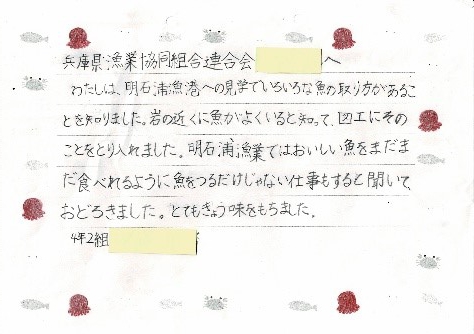 兵庫県漁業協同組合連合会 へ
わたしは、明石浦漁港への見学でいろいろな魚の取り方があるこ
とを知りました。岩の近くに魚がよくいると知って、図工にその
ことをとり入れました。明石浦漁業ではおいしい魚をまだま
だ食べれるように魚をつるだけじゃない仕事もすると聞いて、
おどろきました。とてもきょう味をもちました。
4年2組